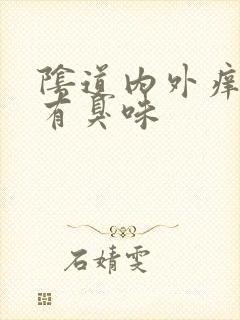 陰道内外痒
有臭味
石婧雯